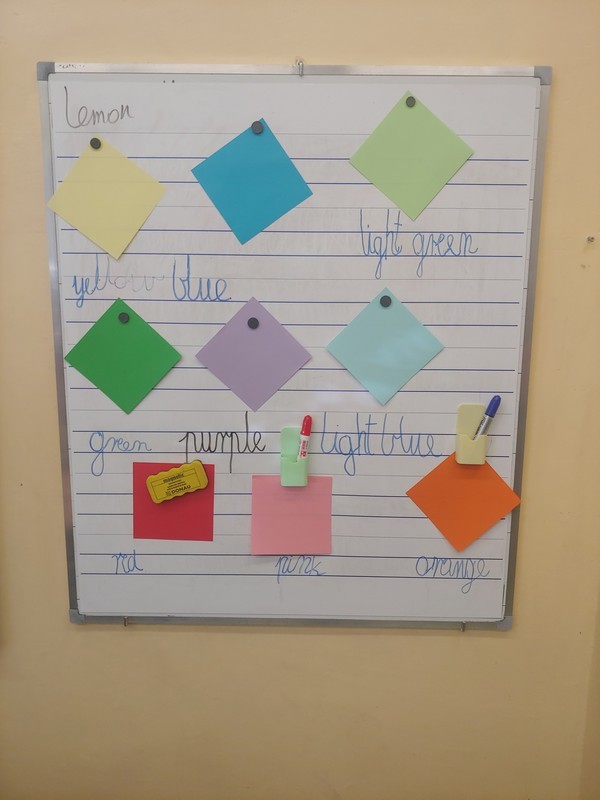 lemon
light green
yellow blue
green purple light blue
magnetic
DONAU
red pink orange